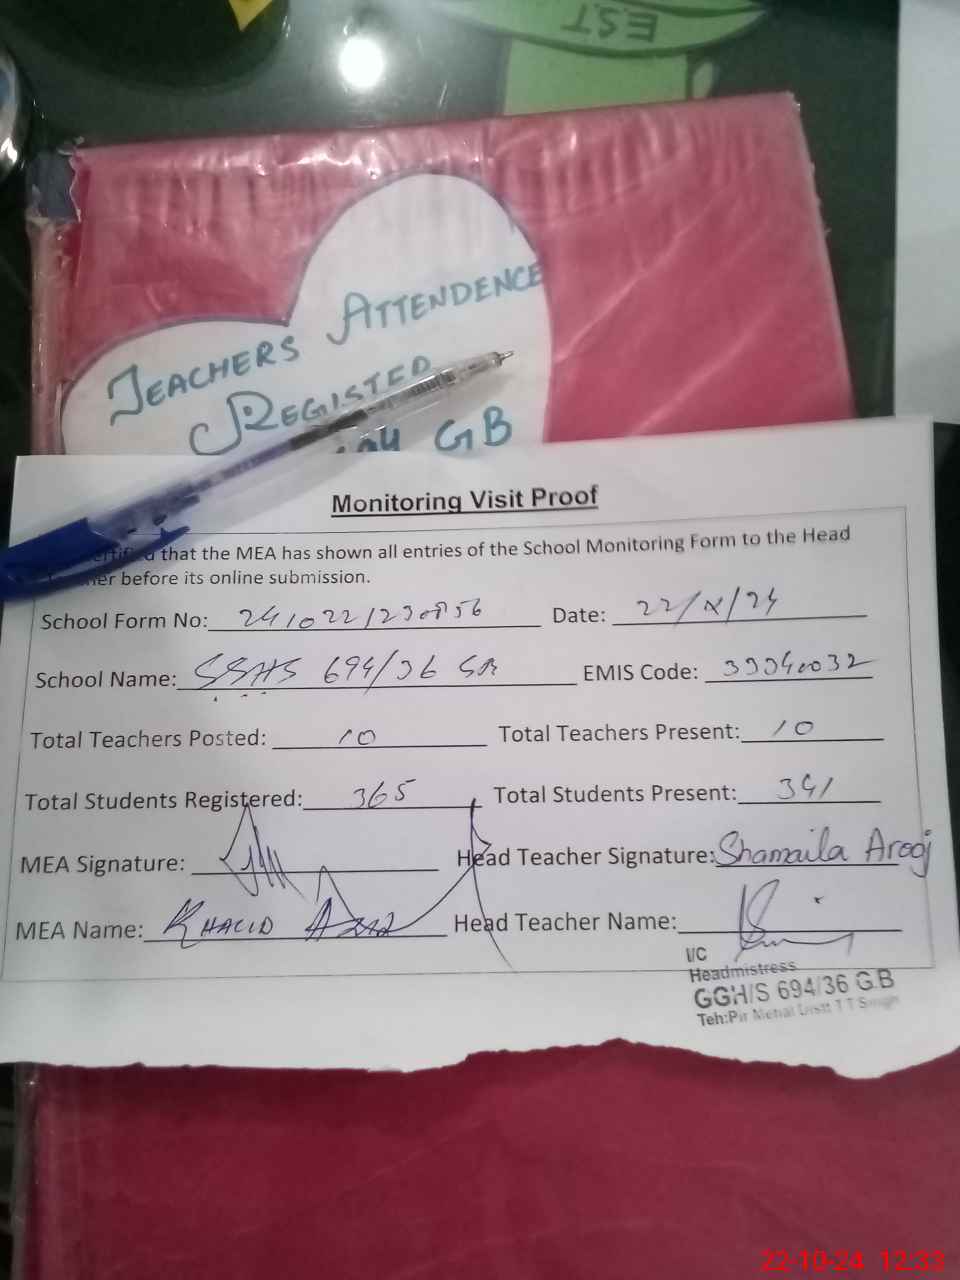 EST
TEACHERS ATTENDENCE
REGISTER
GB
Monitoring Visit Proof
that the MEA has shown all entries of the School Monitoring Form to the Head
before its online submission.
School Form No: Date: 22/X/24
School Name: 694/36 GB EMIS Code: 33340032
Total Teachers Posted: 10 Total Teachers Present: 10
Total Students Registered: 365 Total Students Present: 341
MEA Signature: Head Teacher Signature: Shamaila Arooj
MEA Name: KHALID AZIZ Head Teacher Name:
I/C
Headmistress
GGH/S 694/36 G.B
Teh:Pir Mehal Distt T T Singh
22-10-24 12:33